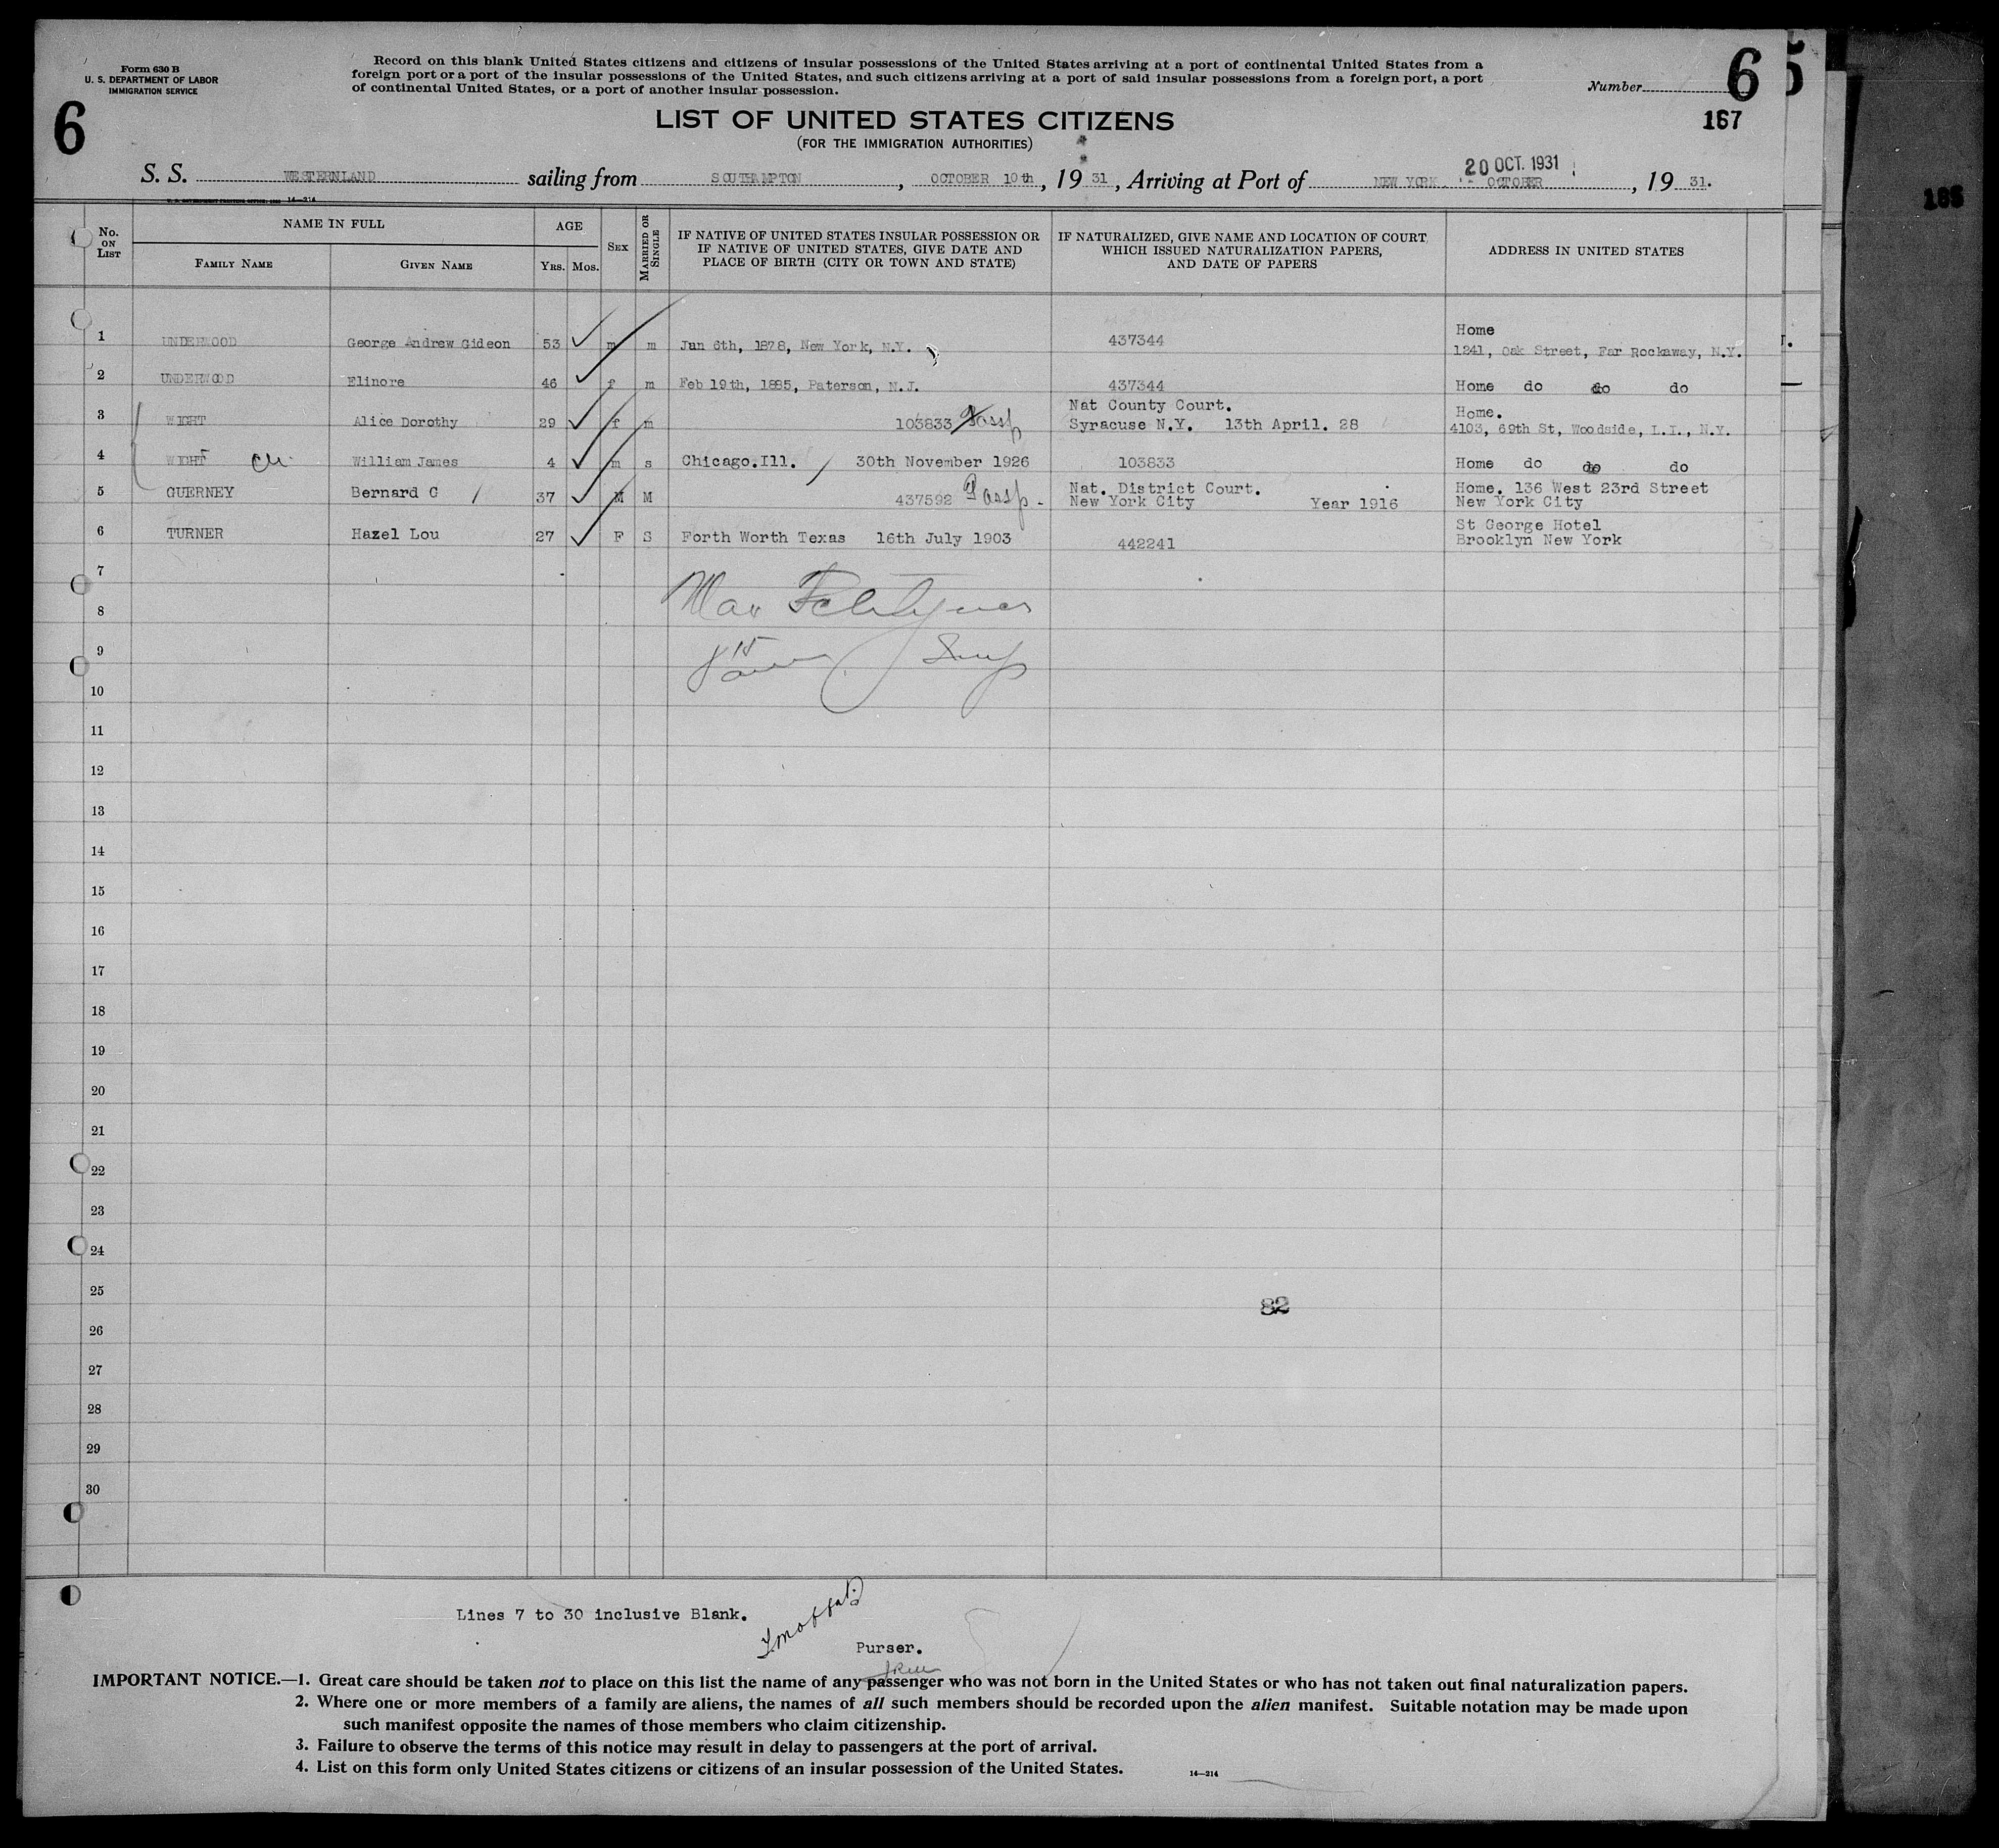 Form 630 B
U. S. DEPARTMENT OF LABOR
IMMIGRATION SERVICE
6
Record on this blank United States citizens and citizens of insular possessions of the United States arriving at a port of continental United States from a
foreign port or a port of the insular possessions of the United States, and such citizens arriving at a port of said insular possessions from a foreign port, a port
of continental United States, or a port of another insular possession.
Number 6
5
167
LIST OF UNITED STATES CITIZENS
(FOR THE IMMIGRATION AUTHORITIES)
20 OCT. 1931
S. S. WESTERNLAND sailing from SOUTHAMPTON, OCTOBER 10th, 19 31, Arriving at Port of NEW YORK. OCTOBER, 19 31.
U. S. GOVERNMENT PRINTING OFFICE 14—214
No. ON LIST
NAME IN FULL
FAMILY NAME
GIVEN NAME
AGE
YRS. MOS.
SEX
MARRIED OR SINGLE
IF NATIVE OF UNITED STATES INSULAR POSSESSION OR
IF NATIVE OF UNITED STATES, GIVE DATE AND
PLACE OF BIRTH (CITY OR TOWN AND STATE)
IF NATURALIZED, GIVE NAME AND LOCATION OF COURT
WHICH ISSUED NATURALIZATION PAPERS,
AND DATE OF PAPERS
ADDRESS IN UNITED STATES
1 UNDERWOOD George Andrew Gideon 53 m m Jan 6th, 1878, New York, N.Y. 437344 Home
1241, Oak Street, Far Rockaway, N.Y.
2 UNDERWOOD Elinore 46 f m Feb 19th, 1885, Paterson, N.J. 437344 Home do do do
3 WIGHT Alice Dorothy 29 f m 103833 Passp Nat County Court.
Syracuse N.Y. 13th April. 28 Home.
4103, 69th St, Woodside, L.I., N.Y.
4 WIGHT William James 4 m s Chicago.Ill. 30th November 1926 103833 Home do do do
5 GUERNEY Bernard G 37 M M 437592 Passp - Nat. District Court.
New York City Year 1916 Home. 136 West 23rd Street
New York City
6 TURNER Hazel Lou 27 F S Forth Worth Texas 16th July 1903 442241 St George Hotel
Brooklyn New York
7
8
9
10
11
12
13
14
15
16
17
18
19
20
21
22
23
24
25
82
26
27
28
29
30
Lines 7 to 30 inclusive Blank.
Purser.
IMPORTANT NOTICE.—1. Great care should be taken not to place on this list the name of any passenger who was not born in the United States or who has not taken out final naturalization papers.
2. Where one or more members of a family are aliens, the names of all such members should be recorded upon the alien manifest. Suitable notation may be made upon
such manifest opposite the names of those members who claim citizenship.
3. Failure to observe the terms of this notice may result in delay to passengers at the port of arrival.
4. List on this form only United States citizens or citizens of an insular possession of the United States.
14—214